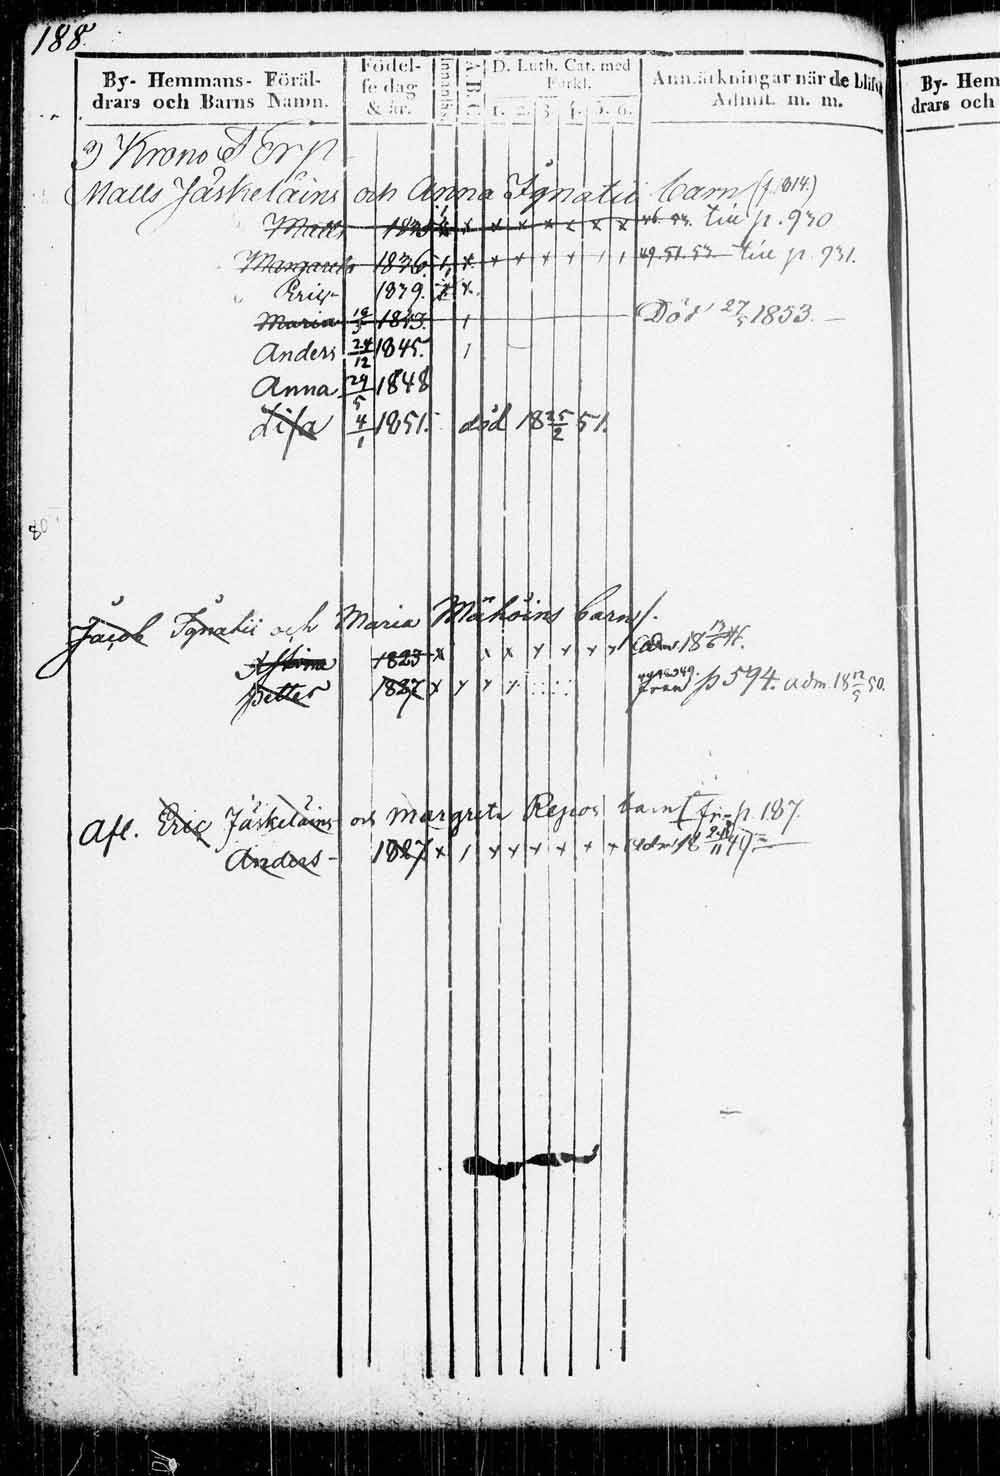 188.
By- Hemmans- Föräl-
drars och Barns Namn.
Födel-
se dag
& år.
Innanläs.
A. B. C.
D. Luth. Cat. med
Förkl.
1. 2. 3. 4. 5. 6.
Anmärkningar när de blifvit
Admit. m. m.
By- Hem
drars och
a) Krono Torp
Matts Jäskeläins och Anna Ignatii barn (f. 814.)
Matts 183 x x x x x x x till p. 930
Margareta 1836. 1 x x x x x 1 1 49. 51. 53 till p. 931.
Eric 1839. x x.
Maria 19/3 1843. 1 Död 27/5 1853.
Anders 24/12 1845. 1
Anna 29/5 1848
Lisa 4/1 1851. död 18 25/2 51.
80
Jacob Ignatii och Maria Mähöins barn/.
1823 x x x x x x x adm 18
Petter 1827 x x x x från p 594. adm. 18 12/5 50.
Afl. Eric Jäskeläins och Margreta Repos barn [fr. p. 187.
Anders 1827 x 1 x x x x x x